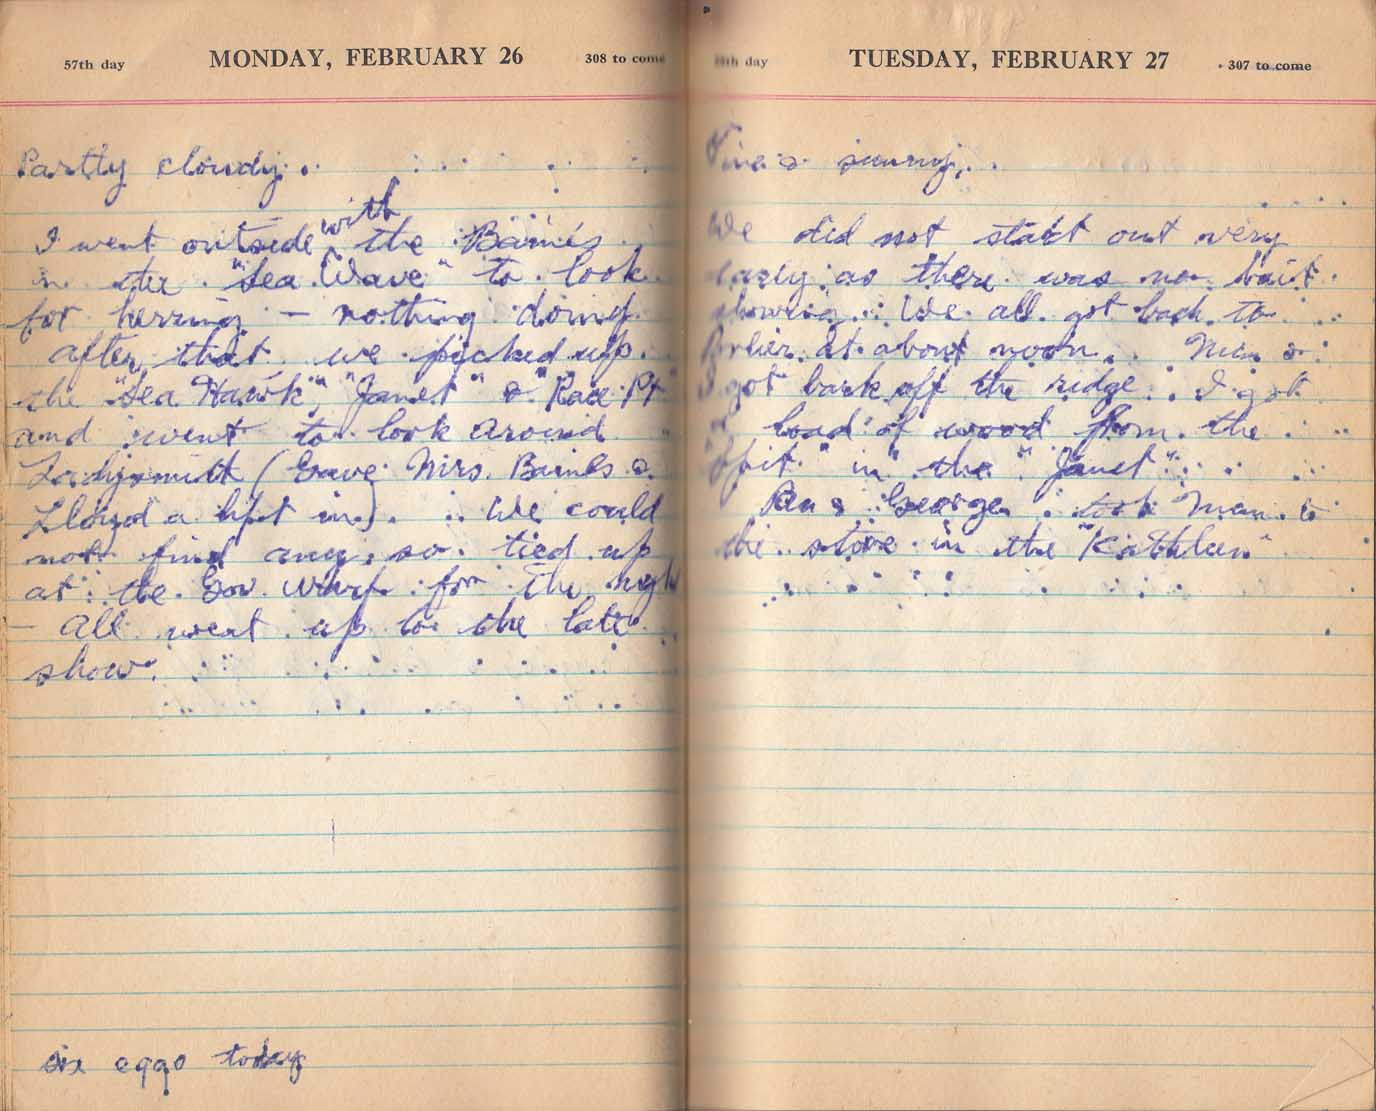 57th day MONDAY, FEBRUARY 26 308 to come
Partly cloudy.
with
I went outside the Baines
in the "Sea Wave" to look
for herring - nothing doing.
After that we picked up
the "Sea Hawk", "Janet" & "Race Pt"
and went to look around
Ladysmith (Gave Mrs. Baines &
Lloyd a lift in). We could
not find any, so tied up
at the Gov. wharf for the night
- All went up to the late
show.
six eggs today
58th day TUESDAY, FEBRUARY 27 307 to come
Fine & sunny.
We did not start out very
early as there was no bait
showing. We all got back to
Porlier at about noon. Mum &
I got bark off the ridge. I got
a load of wood from the
"Spit" in the "Janet".
& George took Mum to
the store in the "Kathleen"